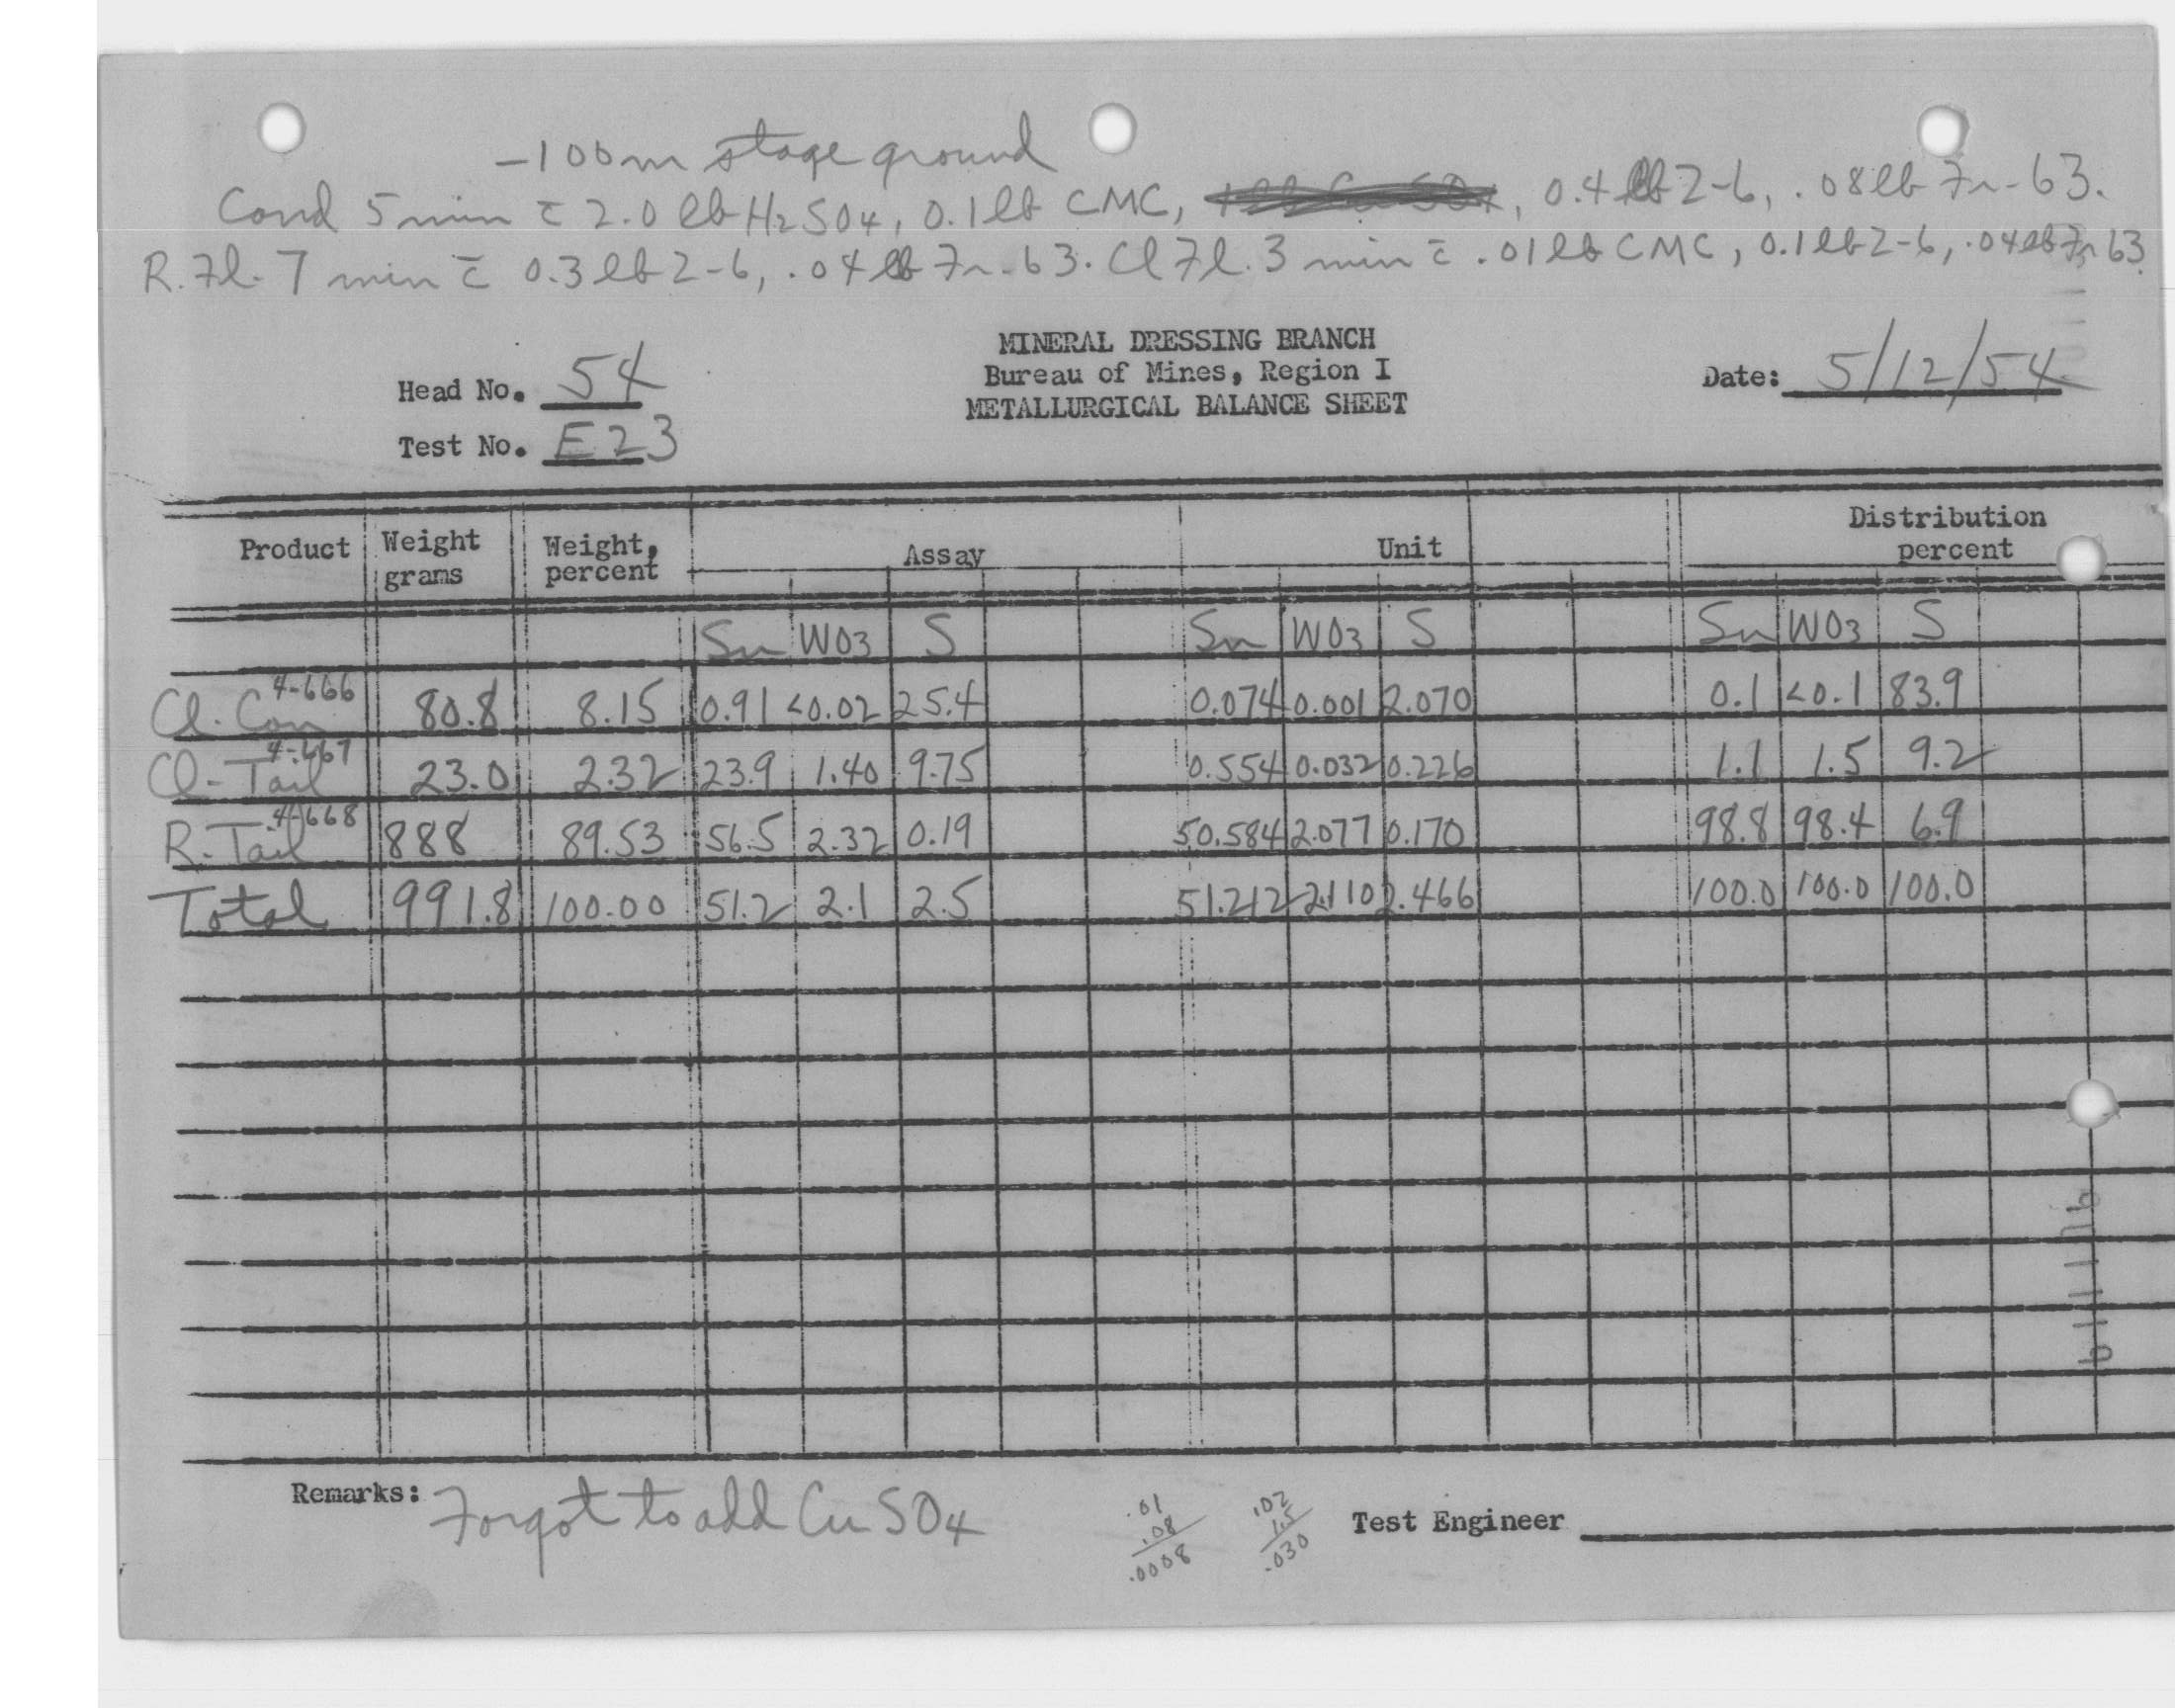 -100m stage ground
Cond 5 min c̄ 2.0 lb H2SO4, 0.1 lb CMC, , 0.4 lb Z-6, .08 lb Fr-63.
R. Fl. 7 min c̄ 0.3 lb Z-6, .04 lb Fr-63. Cl Fl. 3 min c̄ .01 lb CMC, 0.1 lb Z-6, .04 lb Fr 63
MINERAL DRESSING BRANCH
Bureau of Mines, Region I
METALLURGICAL BALANCE SHEET
Head No. 54
Test No. E23
Date: 5/12/54
Product Weight grams Weight, percent Assay Unit Distribution percent
Sn WO3 S Sn WO3 S Sn WO3 S
Cl. Con 4-666 80.8 8.15 0.91 <0.02 25.4 0.074 0.001 2.070 0.1 <0.1 83.9
Cl-Tail 4-667 23.0 2.32 23.9 1.40 9.75 0.554 0.032 0.226 1.1 1.5 9.2
R-Tail 4-668 888 89.53 56.5 2.32 0.19 50.584 2.077 0.170 98.8 98.4 6.9
Total 991.8 100.00 51.2 2.1 2.5 51.212 2.110 2.466 100.0 100.0 100.0
Remarks: Forgot to add CuSO4
.01
.08
.0008
.02
1.5
.030
Test Engineer